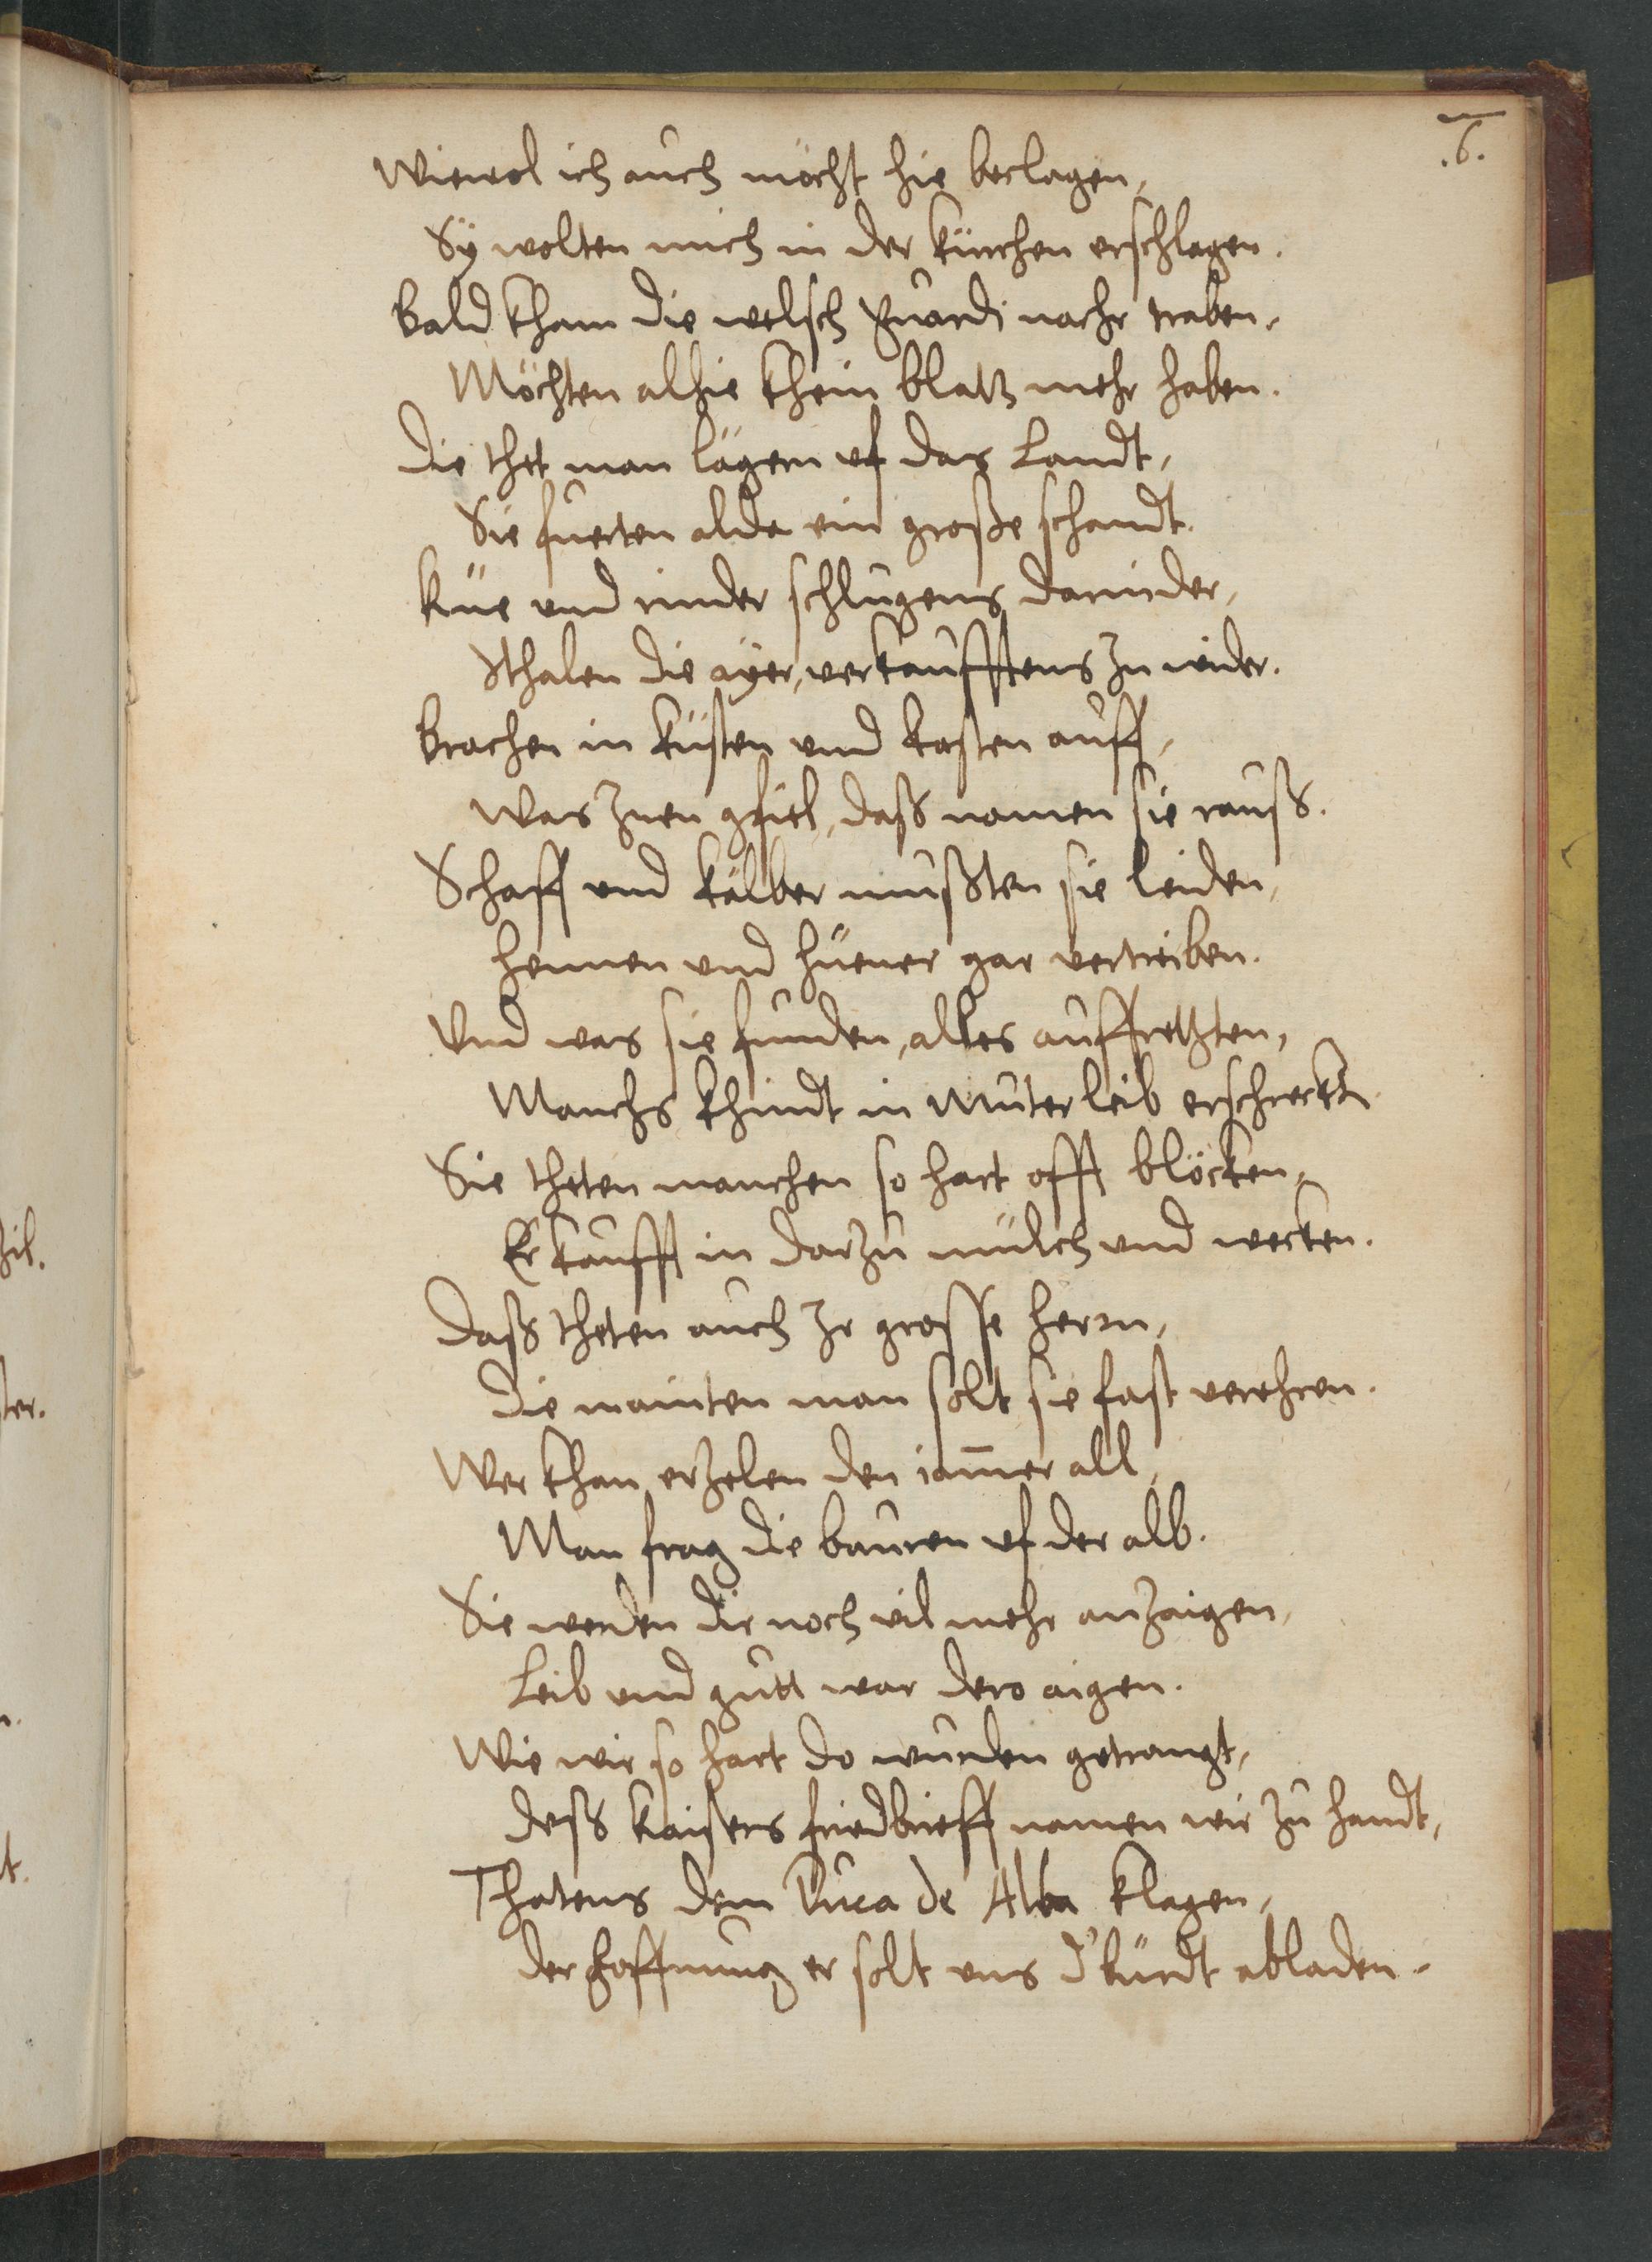 .6.
Wiewol ich auch möcht hie beclagen,
Sÿ wolten mich in der kürchen erschlagen.
Bald kham die welsch Quardi nacher traben,
Möchten alhie khein blatz mehr haben.
Die thet man lägern uf das Landt,
Sie fuerten alda ein große schandt.
Küe und rinder schlugens darnider,
Sthalen die aÿer, verkaufftens zu wider.
Brachen in küsten und kasten auff,
Was Inen gfiel, daß namen sie rauß.
Schaff und kälber mußten sie leiden,
Hennen und hüener gar vertreiben.
Und was sie funden, alles auffretzten,
Manchs khindt in Muter leib erschreckten
Sie theten manchen so hart offt blöcken,
Er kaufft in darzu mülch und wecken.
Daß theten auch Ir grosse herrn,
Die mainten man solt sie fast verehren.
Wer khan erzelen den iam̄er all,
Man frag die bauren uf der alb.
Sie werden dir noch vil mehr anzaigen,
Leib und gutt war dero aigen.
Wie wir so hart do wurden getrangt,
Deß Kaisers friedbrieff namen wir zu handt,
Thatens dem Duca de Alba klagen,
Der Hoffnung er solt uns d'bürdt abladen.